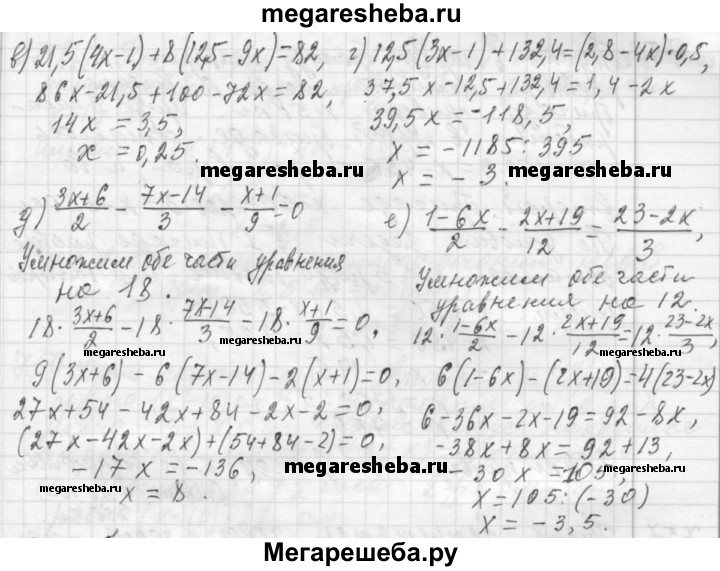 megaresheba.ru
в) 21,5(4x-1)+8(12,5-9x)=82,
86x-21,5+100-72x=82,
14x = 3,5,
x = 0,25.
г) 12,5(3x-1)+132,4=(2,8-4x)·0,5,
37,5x-12,5+132,4=1,4-2x
39,5x=-118,5,
x = -1185:395
x = -3.
megaresheba.ru
megaresheba.ru
д) (3x+6)/2 - (7x-14)/3 - (x+1)/9 = 0
Умножим обе части уравнения
на 18.
18·(3x+6)/2 - 18·(7x-14)/3 - 18·(x+1)/9 = 0,
megaresheba.ru
megaresheba.ru
9(3x+6)-6(7x-14)-2(x+1)=0,
27x+54-42x+84-2x-2=0,
(27x-42x-2x)+(54+84-2)=0,
-17x=-136,
megaresheba.ru
x = 8.
е) (1-6x)/2 - (2x+19)/12 = (23-2x)/3,
Умножим обе части
уравнения на 12.
12·(1-6x)/2 - 12·(2x+19)/12 = 12·(23-2x)/3,
megaresheba.ru
6(1-6x)-(2x+19)=4(23-2x)
6-36x-2x-19=92-8x,
-38x+8x=92+13,
-30x=105,
megaresheba.ru
x=105:(-30)
x = -3,5.
megaresheba.ru
Мегарешеба.ру